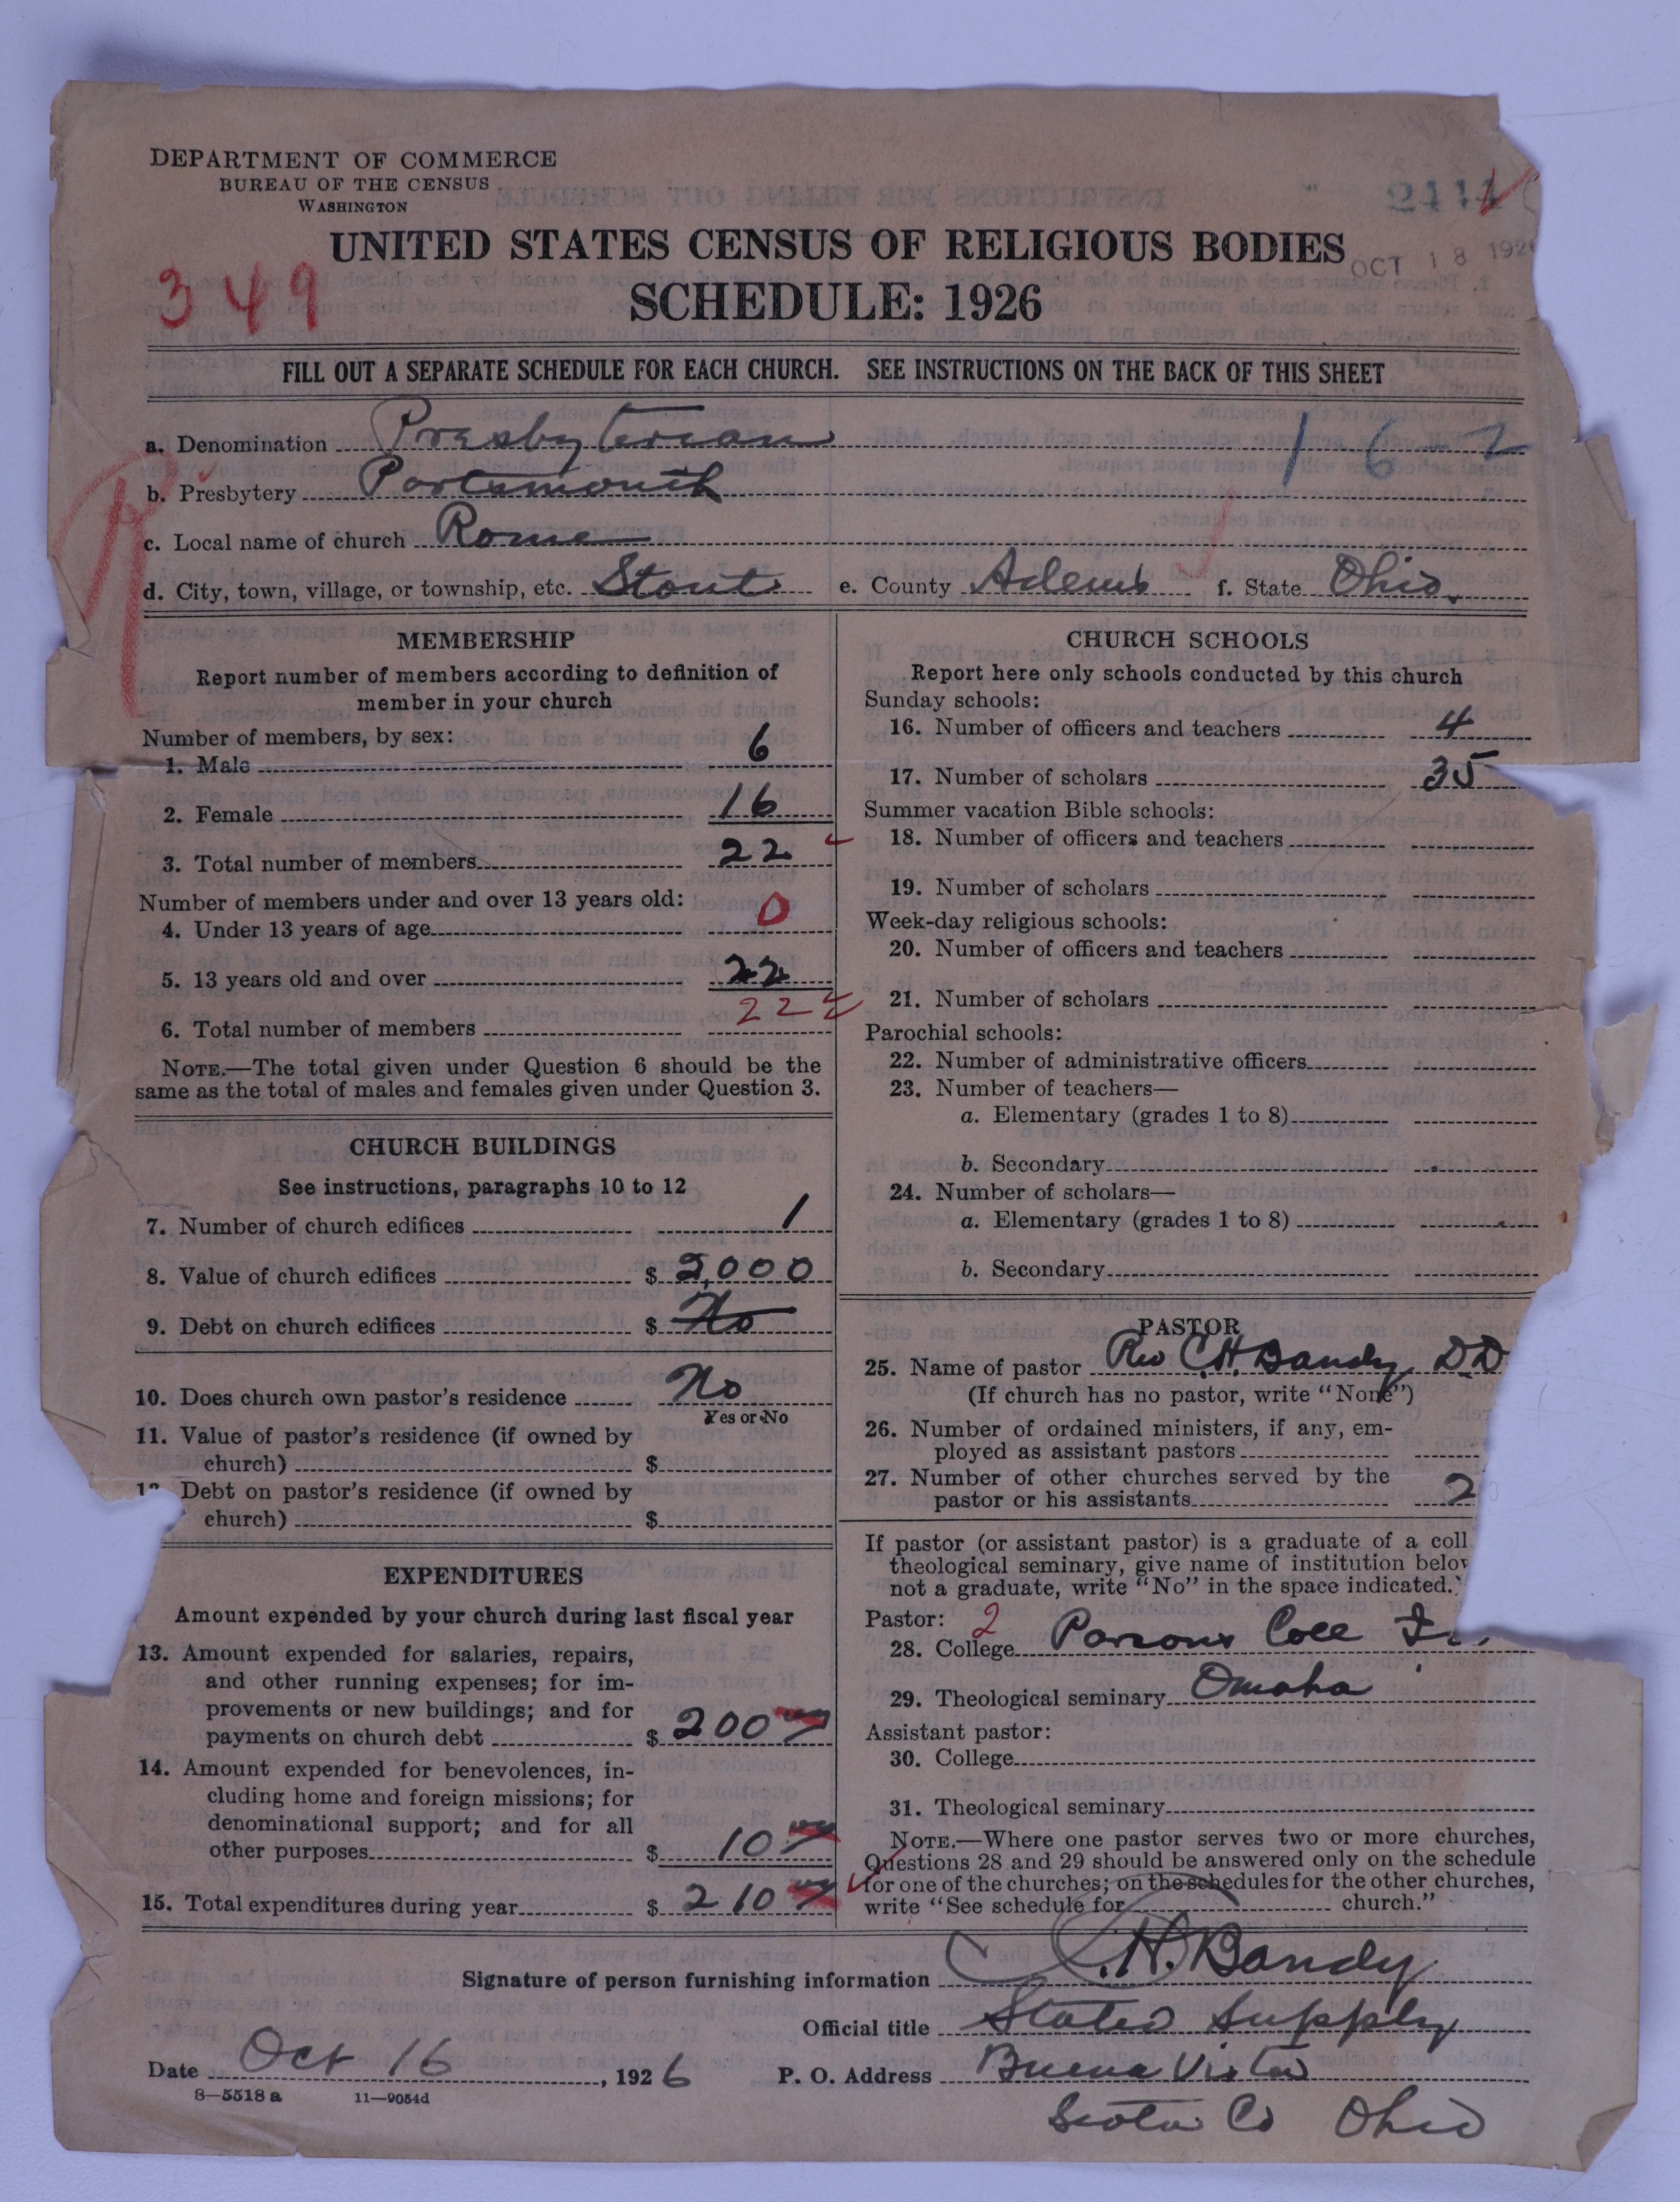 DEPARTMENT OF COMMERCE
BUREAU OF THE CENSUS
WASHINGTON
UNITED STATES CENSUS OF RELIGIOUS BODIES
OCT 18 192
349
SCHEDULE: 1926
FILL OUT A SEPARATE SCHEDULE FOR EACH CHURCH. SEE INSTRUCTIONS ON THE BACK OF THIS SHEET
a. Denomination Presbyterian 1 6 2
b. Presbytery Portsmouth
c. Local name of church Rome
d. City, town, village, or township, etc. Stout e. County Adams f. State Ohio.
MEMBERSHIP
Report number of members according to definition of
member in your church
Number of members, by sex:
1. Male 6
2. Female 16
3. Total number of members 22
Number of members under and over 13 years old:
4. Under 13 years of age 0
5. 13 years old and over 22
6. Total number of members 22
NOTE.—The total given under Question 6 should be the
same as the total of males and females given under Question 3.
CHURCH BUILDINGS
See instructions, paragraphs 10 to 12
7. Number of church edifices 1
8. Value of church edifices $ 2,000
9. Debt on church edifices $ No
10. Does church own pastor's residence No
Yes or No
11. Value of pastor's residence (if owned by
church) $
Debt on pastor's residence (if owned by
church) $
EXPENDITURES
Amount expended by your church during last fiscal year
13. Amount expended for salaries, repairs,
and other running expenses; for im-
provements or new buildings; and for
payments on church debt $ 200
14. Amount expended for benevolences, in-
cluding home and foreign missions; for
denominational support; and for all
other purposes $ 10
15. Total expenditures during year $ 210
CHURCH SCHOOLS
Report here only schools conducted by this church
Sunday schools:
16. Number of officers and teachers 4
17. Number of scholars 35
Summer vacation Bible schools:
18. Number of officers and teachers
19. Number of scholars
Week-day religious schools:
20. Number of officers and teachers
21. Number of scholars
Parochial schools:
22. Number of administrative officers
23. Number of teachers—
a. Elementary (grades 1 to 8)
b. Secondary
24. Number of scholars—
a. Elementary (grades 1 to 8)
b. Secondary
PASTOR
25. Name of pastor Rev C.H. Bandy DD
(If church has no pastor, write "None")
26. Number of ordained ministers, if any, em-
ployed as assistant pastors
27. Number of other churches served by the
pastor or his assistants 2
If pastor (or assistant pastor) is a graduate of a coll
theological seminary, give name of institution belov
not a graduate, write "No" in the space indicated.
Pastor: 2
28. College Parsons Coll
29. Theological seminary Omaha
Assistant pastor:
30. College
31. Theological seminary
NOTE.—Where one pastor serves two or more churches,
Questions 28 and 29 should be answered only on the schedule
for one of the churches; on the schedules for the other churches,
write "See schedule for church."
Signature of person furnishing information C.H. Bandy
Official title Stated Supply
Date Oct 16, 1926 P. O. Address Buena Vista
8—5518 a 11—9054d
Scioto Co Ohio